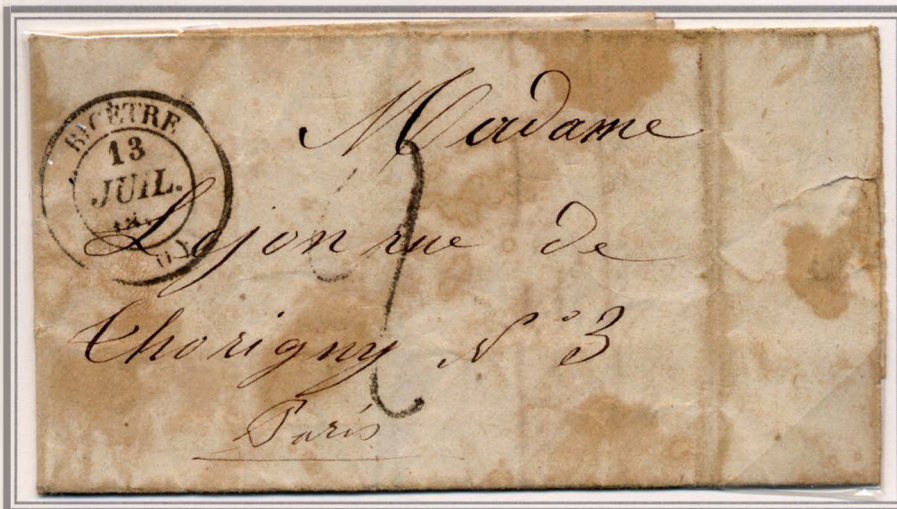 BICÊTRE
13
JUIL.
(60)
Madame
Lojon rue de
Thorigny N° 3
Paris
2